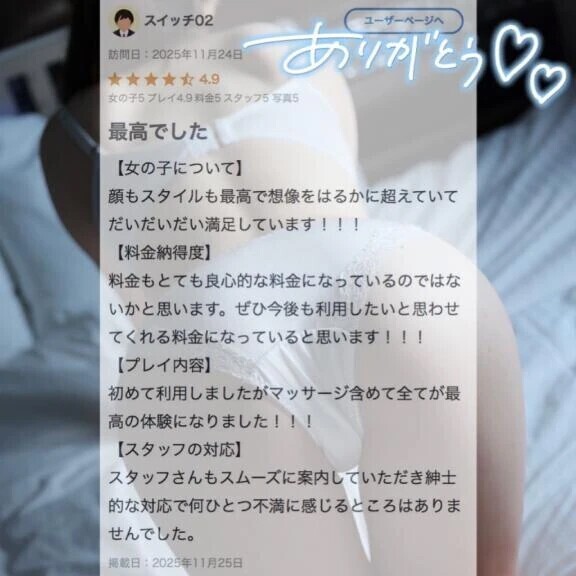 スイッチ02
ユーザーページへ
訪問日：2025年11月24日
ありがとう♡♡
★★★★★ 4.9
女の子5 プレイ4.9 料金5 スタッフ5 写真5
最高でした
【女の子について】
顔もスタイルも最高で想像をはるかに超えていて
だいだいだい満足しています！！！
【料金納得度】
料金もとても良心的な料金になっているのではな
いかと思います。ぜひ今後も利用したいと思わせ
てくれる料金になっていると思います！！！
【プレイ内容】
初めて利用しましたがマッサージ含めて全てが最
高の体験になりました！！！
【スタッフの対応】
スタッフさんもスムーズに案内していただき紳士
的な対応で何ひとつ不満に感じるところはありま
せんでした。
掲載日：2025年11月25日